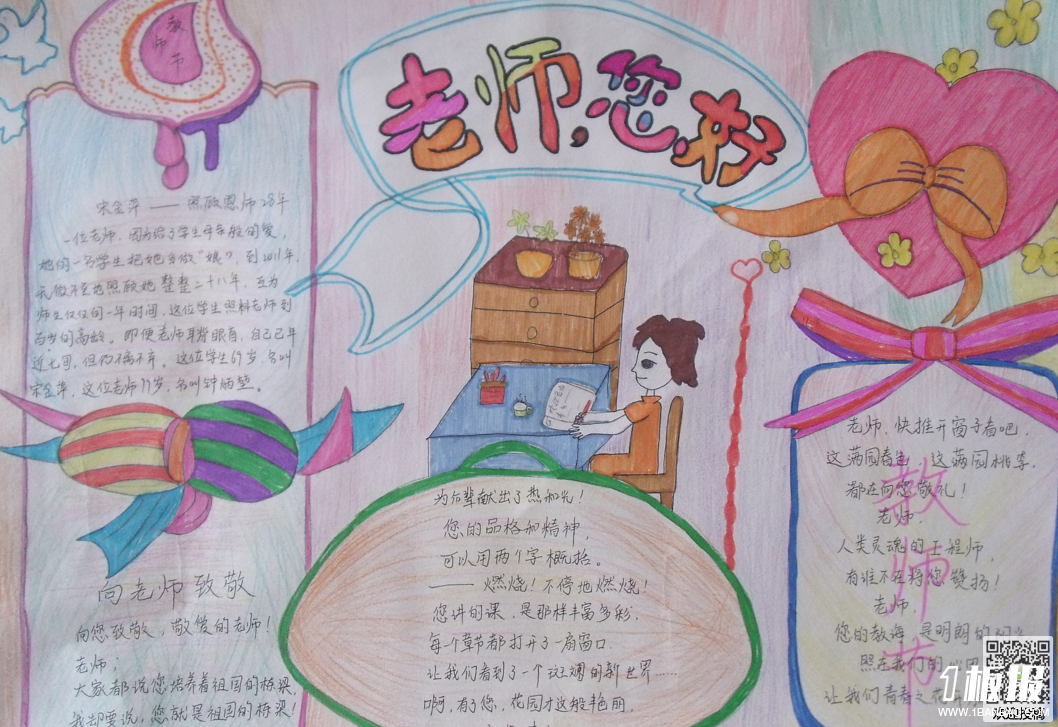 教
师
节
老师,您好
宋金萍——照顾恩师28年
一位老师,因为给了学生母亲般的爱,
她的一名学生把她当做“娘”。到2011年,
无微不至地照顾她整整二十八年,互为
师生仅仅的一年时间,这位学生照料老师到
百岁的高龄。即便老师耳背眼盲,自己已年
近七旬,但仍不离不弃。这位学生69岁,名叫
宋金萍,这位老师99岁,名叫钟
向老师致敬
向您致敬,敬爱的老师!
老师;
大家都说您培养着祖国的栋梁,
我却要说,您就是祖国的栋梁!
为后辈献出了热和光!
您的品格和精神,
可以用两个字概括。
——燃烧!不停地燃烧!
您讲的课,是那样丰富多彩,
每个章节都打开了一扇窗口.
让我们看到了一个斑斓的新世界……
啊,有了您,花园才这般艳丽,
老师,快推开窗子看吧,
这满园春色,这满园桃李,
都在向您敬礼!
老师,
人类灵魂的工程师,
有谁不在将您赞扬!
老师,
您的教诲,是明朗的
照在我们的
让我们青春之花
教
师
节
1板报
WWW.1BANBAO.COM
欢迎投稿